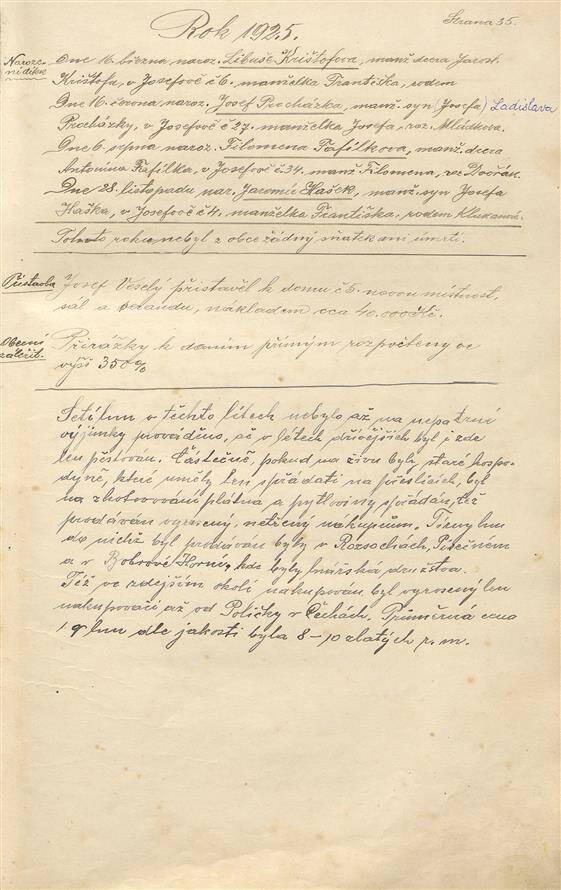 Strana 35.
Rok 1925.
Naroze-
ní dítek
Dne 16. března naroz. Libuše Krištofova, manž. dcera Jarosl.
Krištofa, v Josefově č 6. manželka Františka, rodem
Dne 16. června naroz. Josef Procházka, manž. syn (Josefa) Ladislava
Procházky, v Josefově č 27. manželka Josefa, roz. Mládkova.
Dne 6. srpna naroz. Filomena Fafílkova, manž. dcera
Antonína Fafílka, v Josefově č. 34. manž. Filomena, roz Dvořák.
Dne 28. listopadu nar. Jaromír Hašek, manž. syn Josefa
Haška, v Josefově č 4. manželka Františka, rodem
Tohoto roku nebyl z obce žádný sňatek ani úmrtí.
Přístavba
Josef Veselý přistavěl k domu č 5. novou místnost,
sál a verandu, nákladem cca 40.000 Kč.
Obecní
záležit.
Přirážky k daním přímým rozpočteny ve
výši 350%
Setí lnu v těchto létech nebylo až na nepatrné
výjimky prováděno, ač v létech dřívějších byl i zde
len pěstován. Částečně, pokud na živu byly staré hospo-
dyně, které uměly len spřádati na přeslicích, byl
na zhotovování plátna a pytloviny spřádán, též
prodáván vyrosený, netřený nákupčím. Tírny lnu
do nichž byl prodáván byly v Rozsochách, Písečném
a v Bobrové Horní, kde byly lnářská družstva.
Též ve zdejším okolí nakupován byl vyrosený len
nakupovači až od Poličky v Čechách. Průměrná cena
1 q lnu dle jakosti byla 8-10 zlatých r. m.